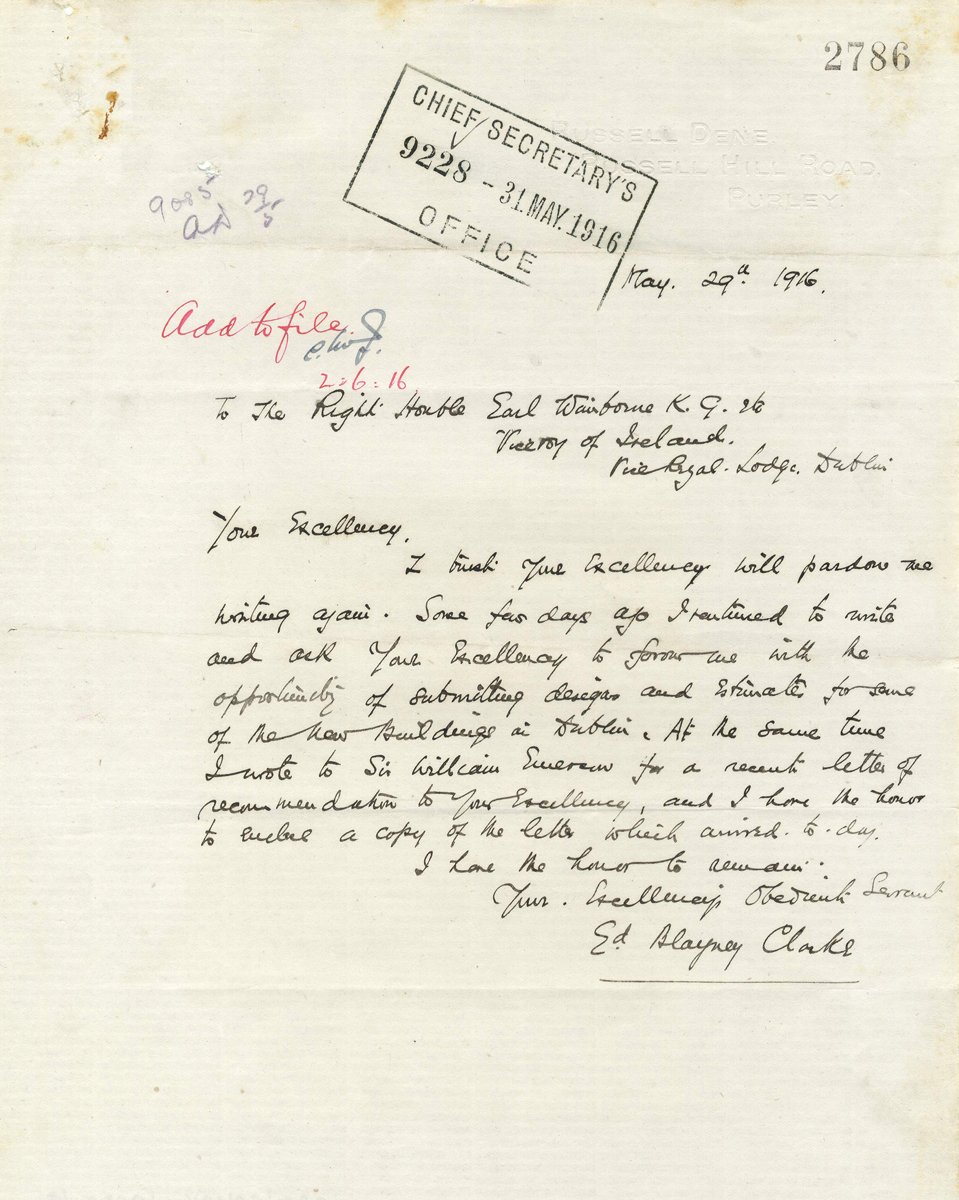 2786
RUSSELL DENE,
RUSSELL HILL ROAD,
PURLEY.
CHIEF SECRETARY'S
9228 - 31. MAY. 1916
OFFICE
9085 29/5
May. 29th 1916.
Add to file.
2=6=16
To The Right Honble Earl Wimborne K. G. etc
Viceroy of Ireland.
Vice Regal. Lodge. Dublin
Your Excellency,
I trust Your Excellency will pardon me
writing again. Some few days ago I ventured to write
and ask Your Excellency to favour me with the
opportunity of submitting designs and Estimates for some
of the New Buildings in Dublin. At the same time
I wrote to Sir William Emerson for a recent letter of
recommendation to Your Excellency, and I have the honor
to enclose a copy of the letter which arrived to-day.
I have the honor to remain.
Your. Excellency's Obedient Servant
Ed Blayney Clarke